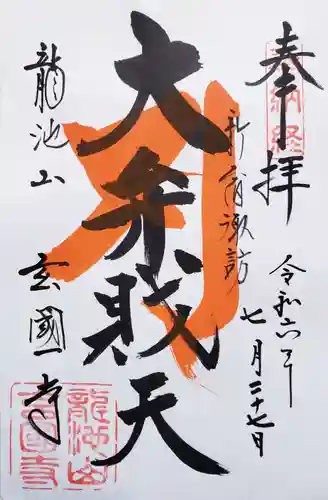 奉拝
納経
令和六年
七月二十七日
新宿諏訪
大弁財天
龍池山 玄國寺
龍池山
玄國寺